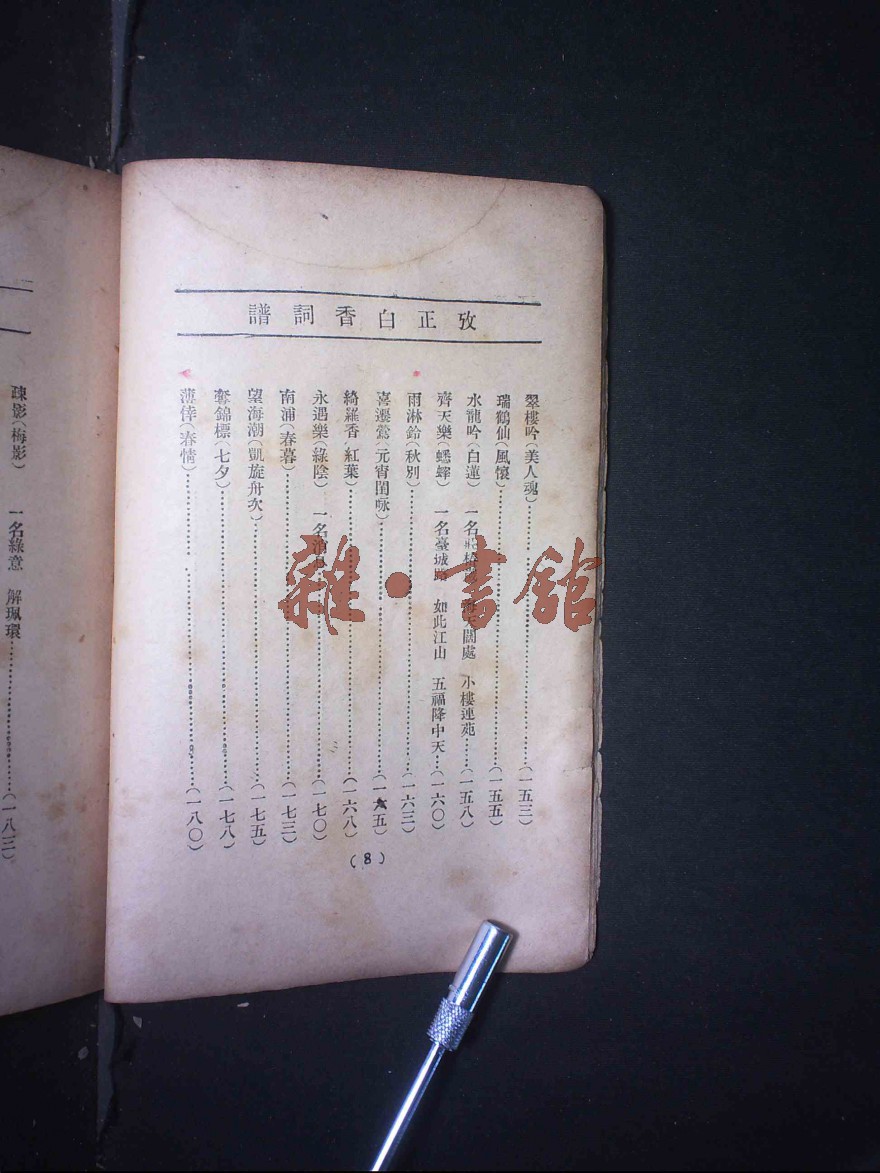 攷正白香詞譜
翠樓吟(美人魂)……(一五三)
瑞鶴仙(風懷)……(一五五)
水龍吟(白蓮) 一名 闊處 小樓連苑……(一五八)
齊天樂(蟋蟀) 一名臺城路 如此江山 五福降中天……(一六〇)
雨淋鈴(秋別)……(一六三)
喜遷鶯(元宵閨咏)……(一六五)
綺羅香(紅葉)……(一六八)
永遇樂(綠陰) 一名消息……(一七〇)
南浦(春暮)……(一七三)
望海潮(凱旋舟次)……(一七五)
奪錦標(七夕)……(一七八)
薄倖(春情)……(一八〇)
(8)
疎影(梅影) 一名綠意 解珮環……(一八三)
雜·書館